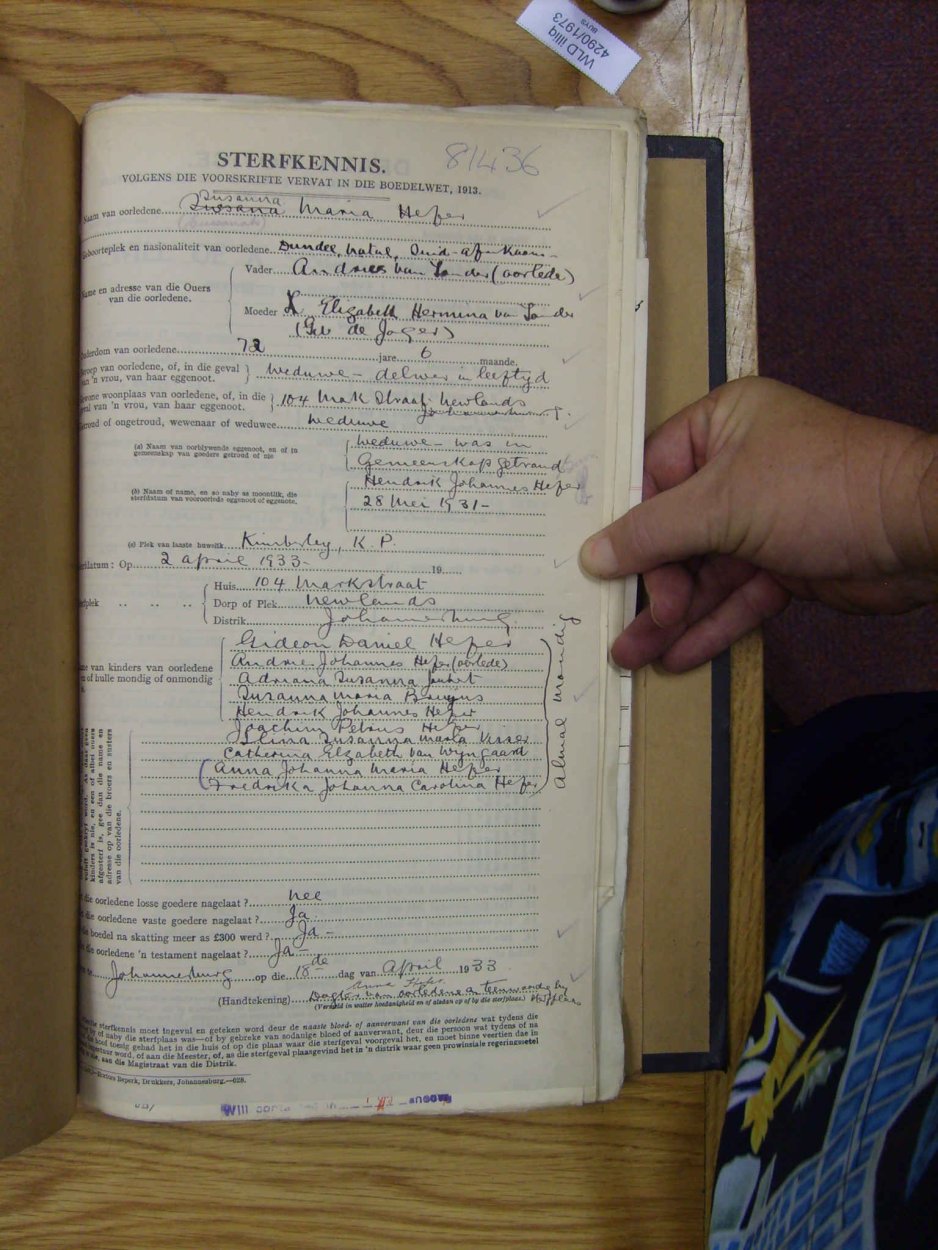 WLD illiq
4290/1973
BUYS
81436
STERFKENNIS.
VOLGENS DIE VOORSKRIFTE VERVAT IN DIE BOEDELWET, 1913.
Susanna
Naam van oorledene Susana Maria Hefer
Geboorteplek en nasionaliteit van oorledene Dundee, Natal, Suid-Afrikaans
Vader Andries van Tonder (oorlede)
Name en adresse van die Ouers
van die oorledene.
Moeder Elizabeth Hermina van Tonder
(Geb de Jager)
Ouderdom van oorledene 72 jare 6 maande.
Beroep van oorledene, of, in die geval
van 'n vrou, van haar eggenoot. Weduwe - delwer in leeftyd
Gewone woonplaas van oorledene, of, in die
geval van 'n vrou, van haar eggenoot. 104 Mark Straat Newlands
Johannesburg.
Getroud of ongetroud, wewenaar of weduwee Weduwe
(a) Naam van oorblywende eggenoot, en of in
gemeenskap van goedere getroud of nie
Weduwe - was in
Gemeenskap getroud
(b) Naam of name, en so naby as moontlik, die
sterfdatum van vooroorlede eggenoot of eggenote.
Hendrik Johannes Hefer
28 Mei 1931 -
(c) Plek van laaste huwelik Kimberley, K.P.
Sterfdatum: Op 2 April 1933 19
Huis 104 Markstraat
Sterfplek Dorp of Plek Newlands
Distrik Johannesburg
Name van kinders van oorledene
en of hulle mondig of onmondig
Gideon Daniel Hefer
Andries Johannes Hefer (oorlede)
Adriana Susanna Joubert
Susanna Maria Bruyns
Hendrik Johannes Hefer
Joachim Petrus Hefer
Susanna Maria Visser
Catherina Elizabeth van Wyngaard
(Anna Johanna Maria Hefer
Fredrika Johanna Carolina Hefer)
Almal Mondig
kinders is nie, en een of albei ouers
afgesterf is, gee dan die name en
adresse op van die broers en susters
van die oorledene.
die oorledene losse goedere nagelaat? Nee
die oorledene vaste goedere nagelaat? Ja
boedel na skatting meer as £300 werd? Ja -
die oorledene 'n testament nagelaat? Ja -
Johannesburg op die 18de dag van April 1933
Anna Hefer
(Handtekening) Dogter van oorledene & teenwoordig by sterfplaas
(Vermeld in watter hoedanigheid en of aldan op of by die sterfplaas.)
sterfkennis moet ingevul en geteken word deur die naaste bloed- of aanverwant van die oorledene wat tydens die
of naby die sterfplaas was—of by gebreke van sodanige bloed of aanverwant, deur die persoon wat tydens of na
hoof toesig gehad het in die huis of op die plaas waar die sterfgeval voorgeval het, en moet binne veertien dae in
word, of aan die Meester, of, as die sterfgeval plaasgevind het in 'n distrik waar geen provinsiale regeringsetel
is nie, aan die Magistraat van die Distrik.
Beperk, Drukkers, Johannesburg.—628.